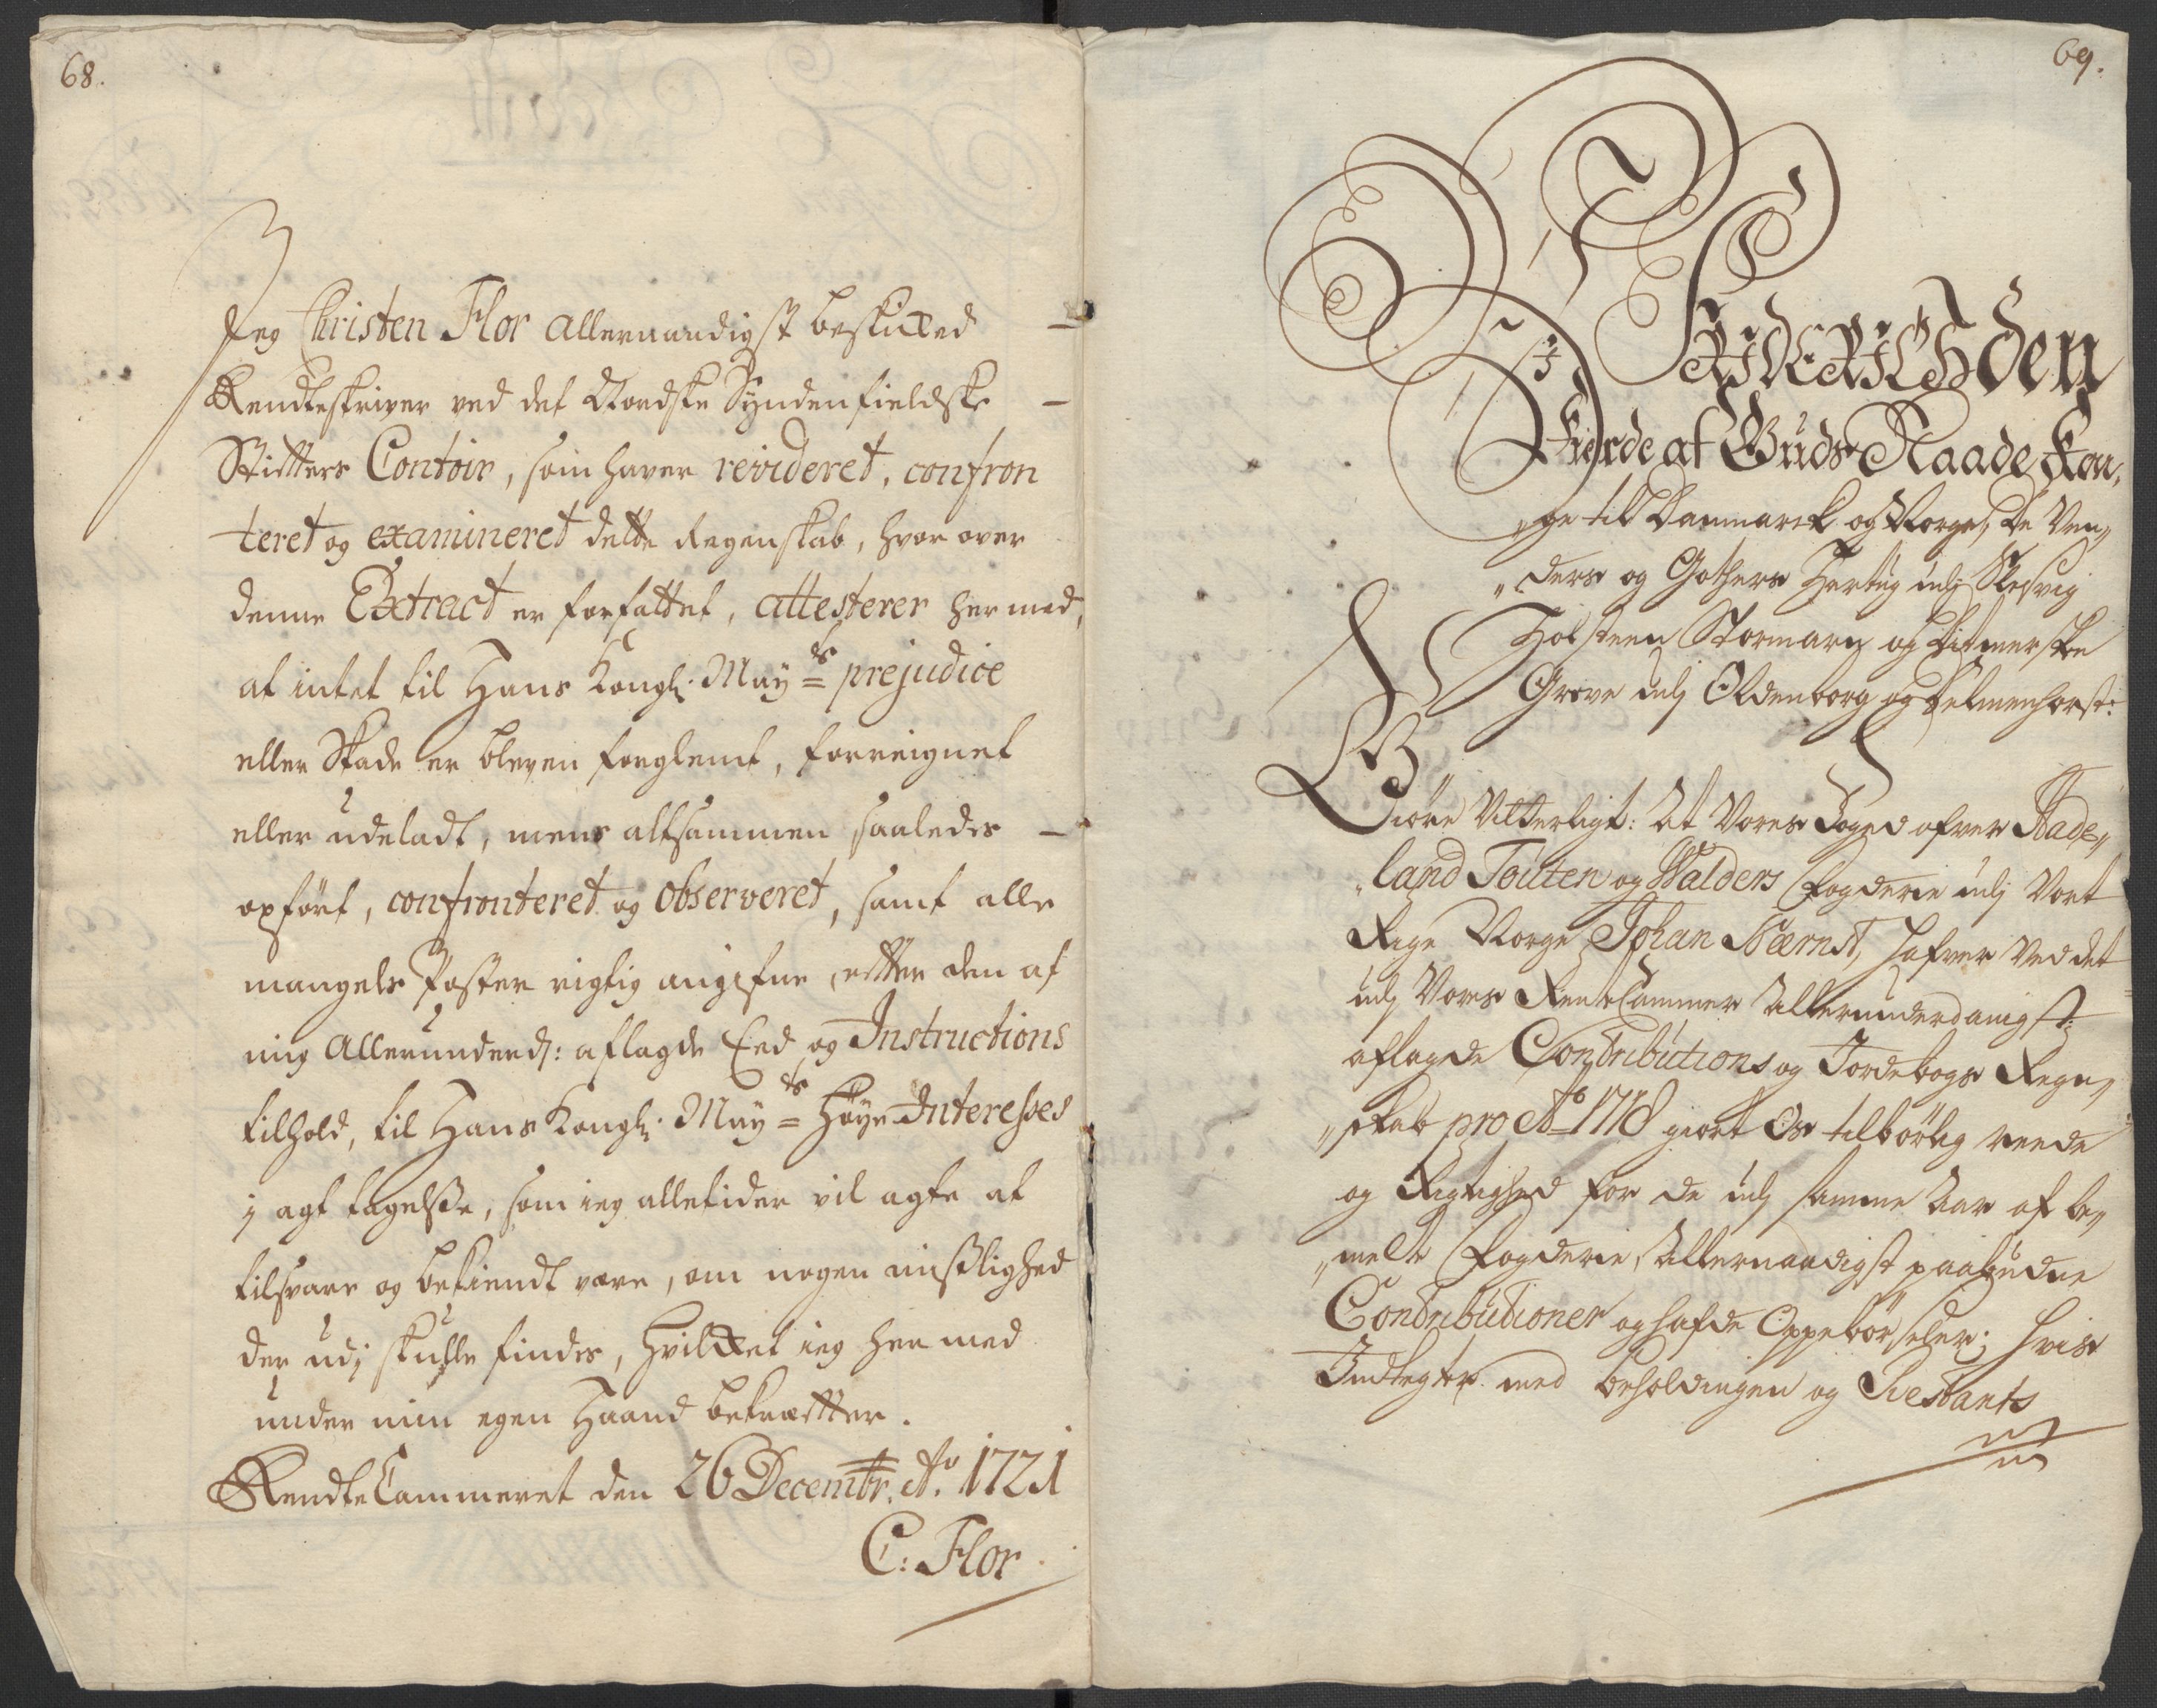 68.
Jeg Christen Flor allernaadigst beskicked
Rendteskriver ved det Nordske Syndenfieldske
Stifters Contoir, som haver revideret, confron
teret og examineret dette Regenskab, hvor over
denne Extract er forfattet, attesterer hermed,
at intet til Hans Kongl. May=ds prejudice
eller Skade er bleven forglemt, forreignet
eller udeladt, mens altsammen saaledes
opført, confronteret og observeret, samt alle
mangels Poster rigtig angifne, efter den af
mig Allerunderd: aflagde Eed og Instructions
tilhold, til Hans Kongl. May=ds Høye Interesses
j agt tagelsse, som jeg alletider vil agte at
tilsvare og bekiendt være, om nogen mislighed
der udj skulle findes, hvilcket jeg her med
under min egen Haand bekræfter.
RendteCammeret den 26 Decembr. Ao. 1721
C: Flor
69.
Friderich den
Fierde af Guds Naade Kon„
„ge til Danmarck og Norge, De Ven„
„ders og Gothers Hertug udj Slesvig
Holsteen Stormarn og Ditmersken
Greve udj Oldenborg og Delmenhorst:
Giøre Vitterligt: At Vores Foged ofver Hade„
„land Touten og Walders Fogderie udj Vort
Rige Norge, Johan Nærnst, hafver ved det
udj Vores RenteCammer Allerunderdanigst
aflagde Contributions og Jordebogs Regn„
„skab pro Ao 1718 giort Os tilbørlig reede
og Rigtighed for de udj samme Aar af be„
„melte Fogderie, Allernaadigst paabudne
Contributioner og hafde Oppebørseler; hvis
Indtegter med beholdingen og Restants